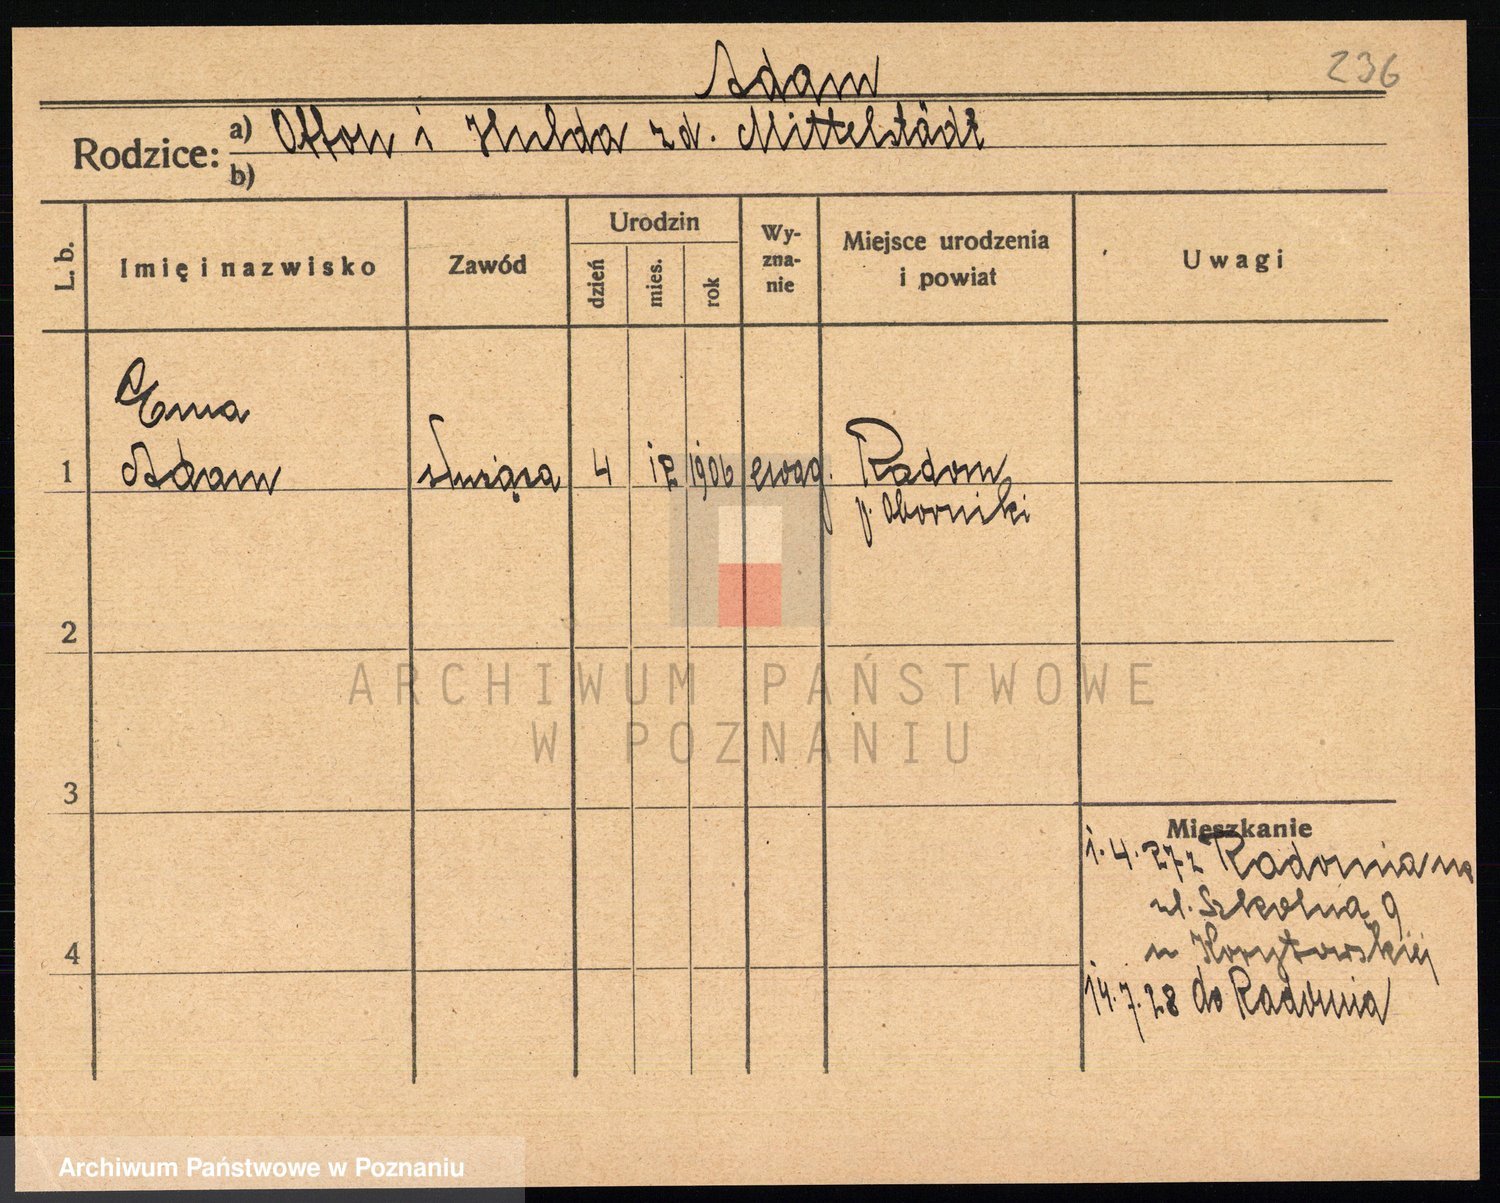 236
Adam
Rodzice: a) Otton i Hulda zd. Mittelstädt
b)
L. b. Imię i nazwisko Zawód Urodzin dzień mies. rok Wy-zna-nie Miejsce urodzenia i powiat Uwagi
Ema
1 Adam służąca 4 12 1906 ewag. Radom
p. Oborniki
2
ARCHIWUM PAŃSTWOWE
W POZNANIU
3
Mieszkanie
1.4.27 z Radomia na
ul. Szkolna 9
u Korytowskiej
4
14.7.28 do Radomia
Archiwum Państwowe w Poznaniu